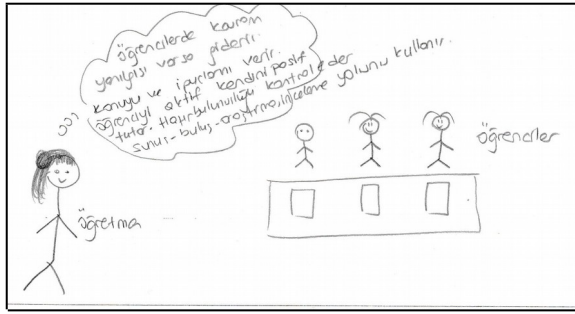 öğrencilerde kavram
yanılgısı varsa giderir.
konuyu ve ipuçlarını verir.
öğrenciyi aktif kendini pasif
tutar. Hazırbulunuşluğu kontrol eder
sunuş-buluş-araştırma,inceleme yolunu kullanır.
öğretmen
öğrenciler